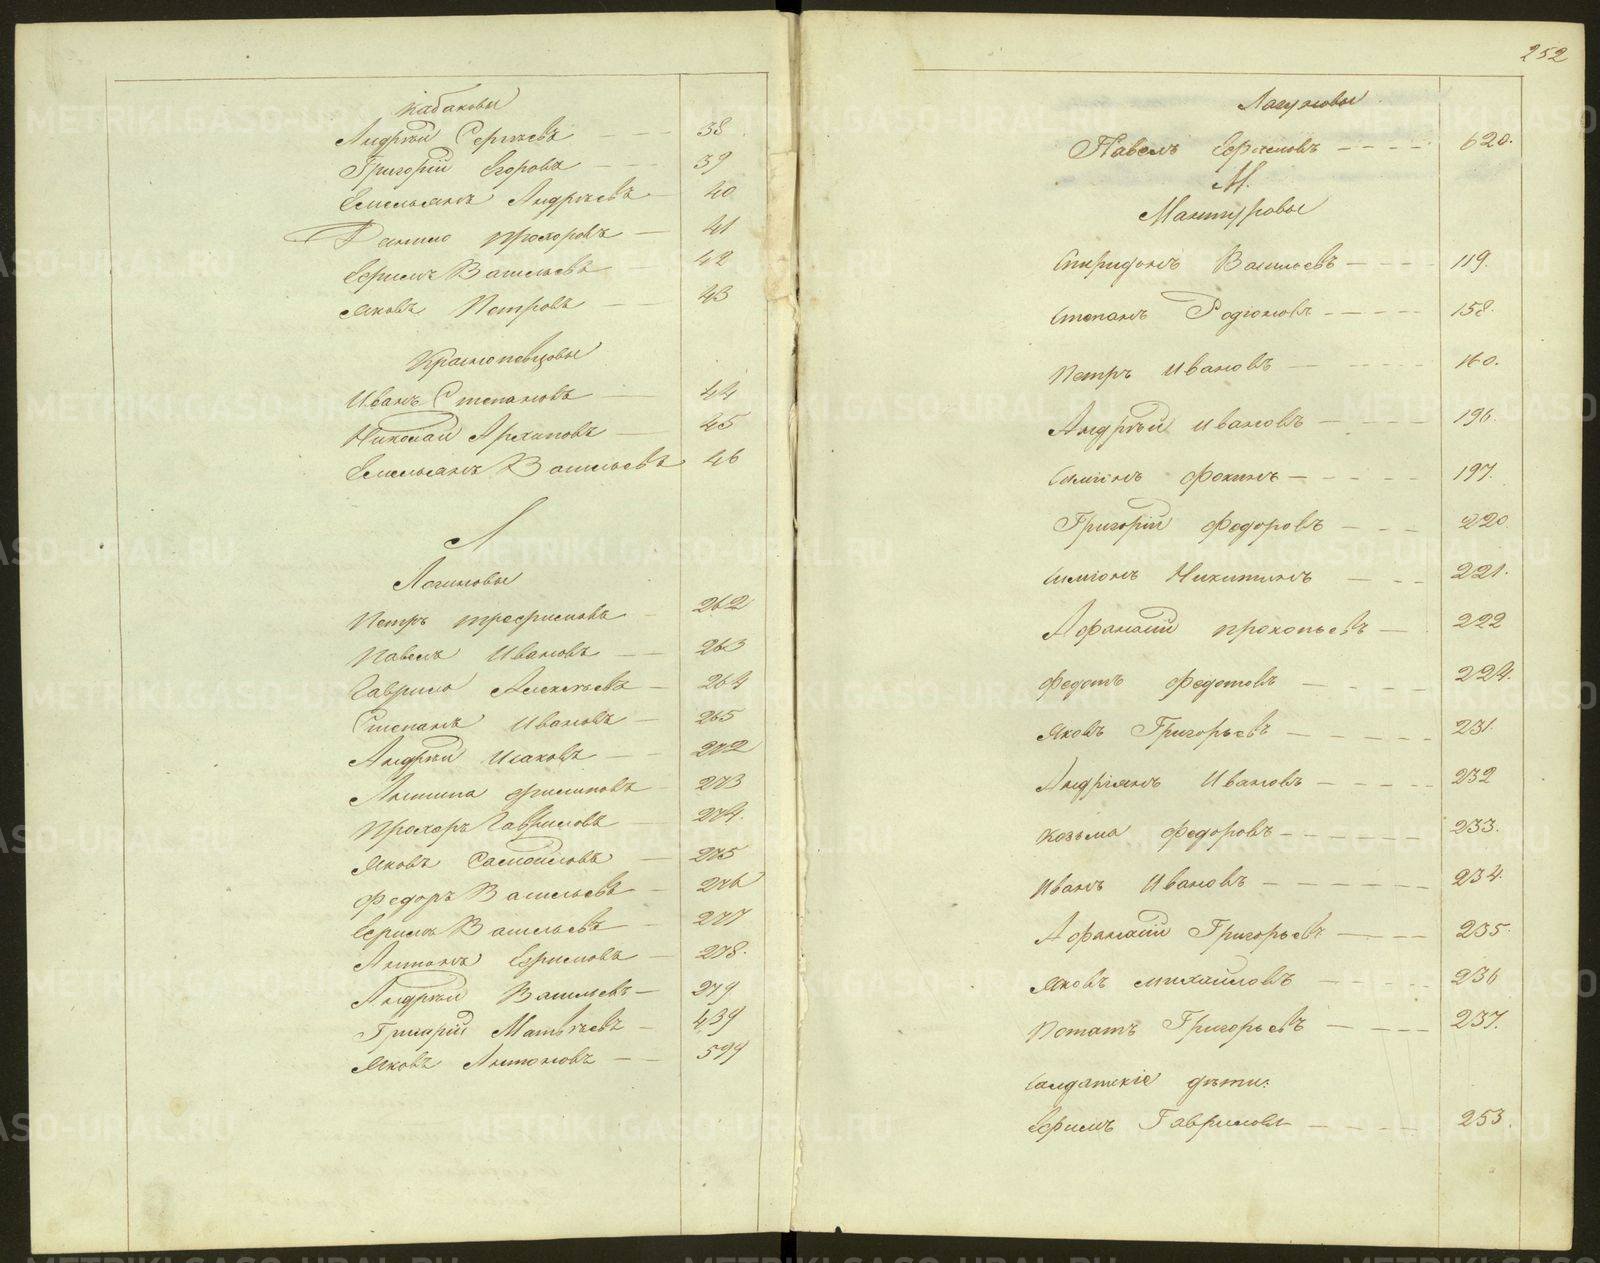 Кабаковы
Андрѣй Сергѣевъ 38
Григорій Егоровъ 39
Емельянъ Андрѣевъ 40
Данило Прохоровъ 41
Ефимъ Васильевъ 42
Яковъ Петровъ 43
Краснопевцовы
Иванъ Степановъ 44
Николай Архиповъ 45
Емельянъ Васильевъ 46
Л
Логиновы
Петръ Трефиловъ 262
Павелъ Ивановъ 263
Гаврило Алексѣевъ 264
Степанъ Ивановъ 265
Андрѣй Исаковъ 272
Антипа Филиповъ 273
Прохоръ Гавриловъ 274.
Яковъ Самойловъ 275
Федоръ Васильевъ 276
Ефимъ Васильевъ 277
Антонъ Ефимовъ 278.
Андрѣй Васильевъ 279
Григорій Матвѣевъ 439
Яковъ Антоновъ 599
252
Лагуновы
Павелъ Ефимовъ 620.
М.
Мантуровы
Спиридонъ Васильевъ 119.
Степанъ Родіоновъ 158.
Петръ Ивановъ 160.
Андрѣй Ивановъ 196.
Симіонъ Фокинъ 197.
Григорій Федоровъ 220.
Симіонъ Никитинъ 221.
Афанасій Прокопьевъ 222
Федотъ Федотовъ 224.
Яковъ Григорьевъ 231.
Андріянъ Ивановъ 232
Козьма Федоровъ 233.
Иванъ Ивановъ 234.
Афанасій Григорьевъ 235.
Яковъ Михайловъ 236
Потапъ Григорьевъ 237.
Салдатскіе дѣти:
Ефимъ Гавриловъ 253.